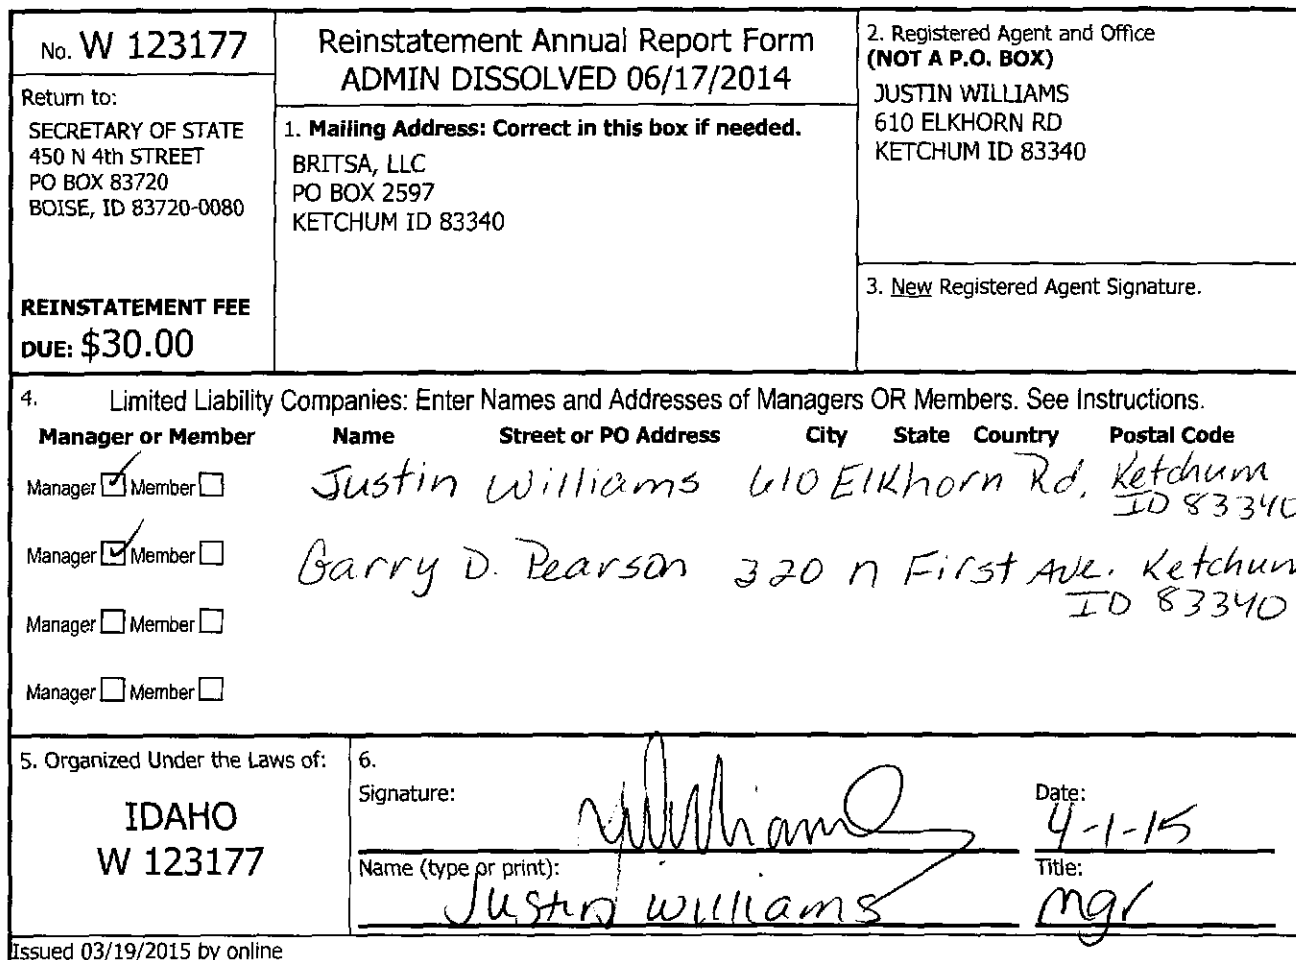 No. W 123177
Return to:
SECRETARY OF STATE
450 N 4th STREET
PO BOX 83720
BOISE, ID 83720-0080
REINSTATEMENT FEE
DUE: $30.00
Reinstatement Annual Report Form
ADMIN DISSOLVED 06/17/2014
1. Mailing Address: Correct in this box if needed.
BRITSA, LLC
PO BOX 2597
KETCHUM ID 83340
2. Registered Agent and Office
(NOT A P.O. BOX)
JUSTIN WILLIAMS
610 ELKHORN RD
KETCHUM ID 83340
3. New Registered Agent Signature.
4. Limited Liability Companies: Enter Names and Addresses of Managers OR Members. See Instructions.
Manager or Member Name Street or PO Address City State Country Postal Code
Manager Member Justin Williams 610 Elkhorn Rd. Ketchum
ID 83340
Manager Member Garry D. Pearson 320 n First Ave. Ketchum
ID 83340
Manager Member
Manager Member
5. Organized Under the Laws of:
IDAHO
W 123177
6.
Signature: Date:
4-1-15
Name (type or print): Title:
Justin Williams mgr
Issued 03/19/2015 by online